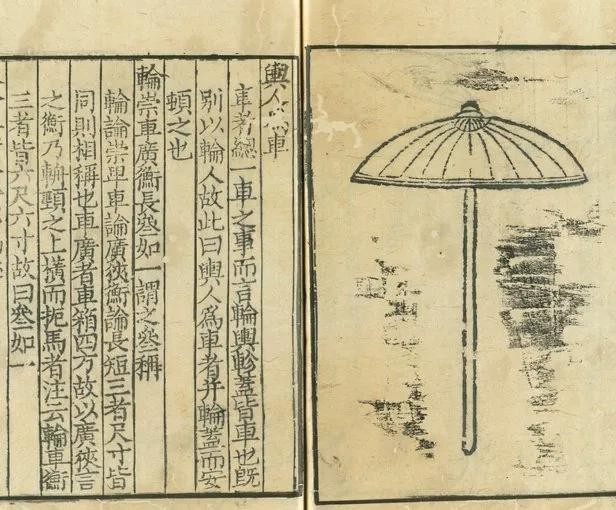 輿人爲車
車者總一車之事而言輪輿軫蓋皆車也既
別以輪人故此曰輿人爲車者并輪蓋而安
頓之也
輪崇車廣衡長叅如一謂之叅稱
輪論崇卑車論廣狹衡論長短三者尺寸皆
同則相稱也車廣者車箱四方故以廣狹言
之衡乃輈頸之上橫而扼馬者注云輪車衡
三者皆六尺六寸故曰叅如一